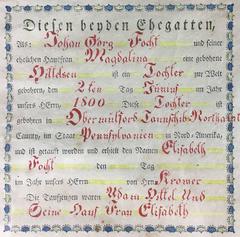 Diesen beyden Ehegatten,
Als: Johan Görg Focht und seiner
ehelichen Hausfrau Magdalina eine geborne
ist ein Tochter zur Welt
gebohren, den 2 ten Tag Junius im Jahr
unsers HErrn 1800 Diese Tochter ist
gebohren in Obermilford Taunschib
Caunty, im Staat Pennsylvanien in Nord-Amerika,
und ist getauft worden und erhielt den Namen Elisabeth
Focht den Tag
im Jahr unsers HErrn von Hrn Kromer
Die Taufzeugen waren Adam Hittel Und
Seine Hausfrau Elisabeth